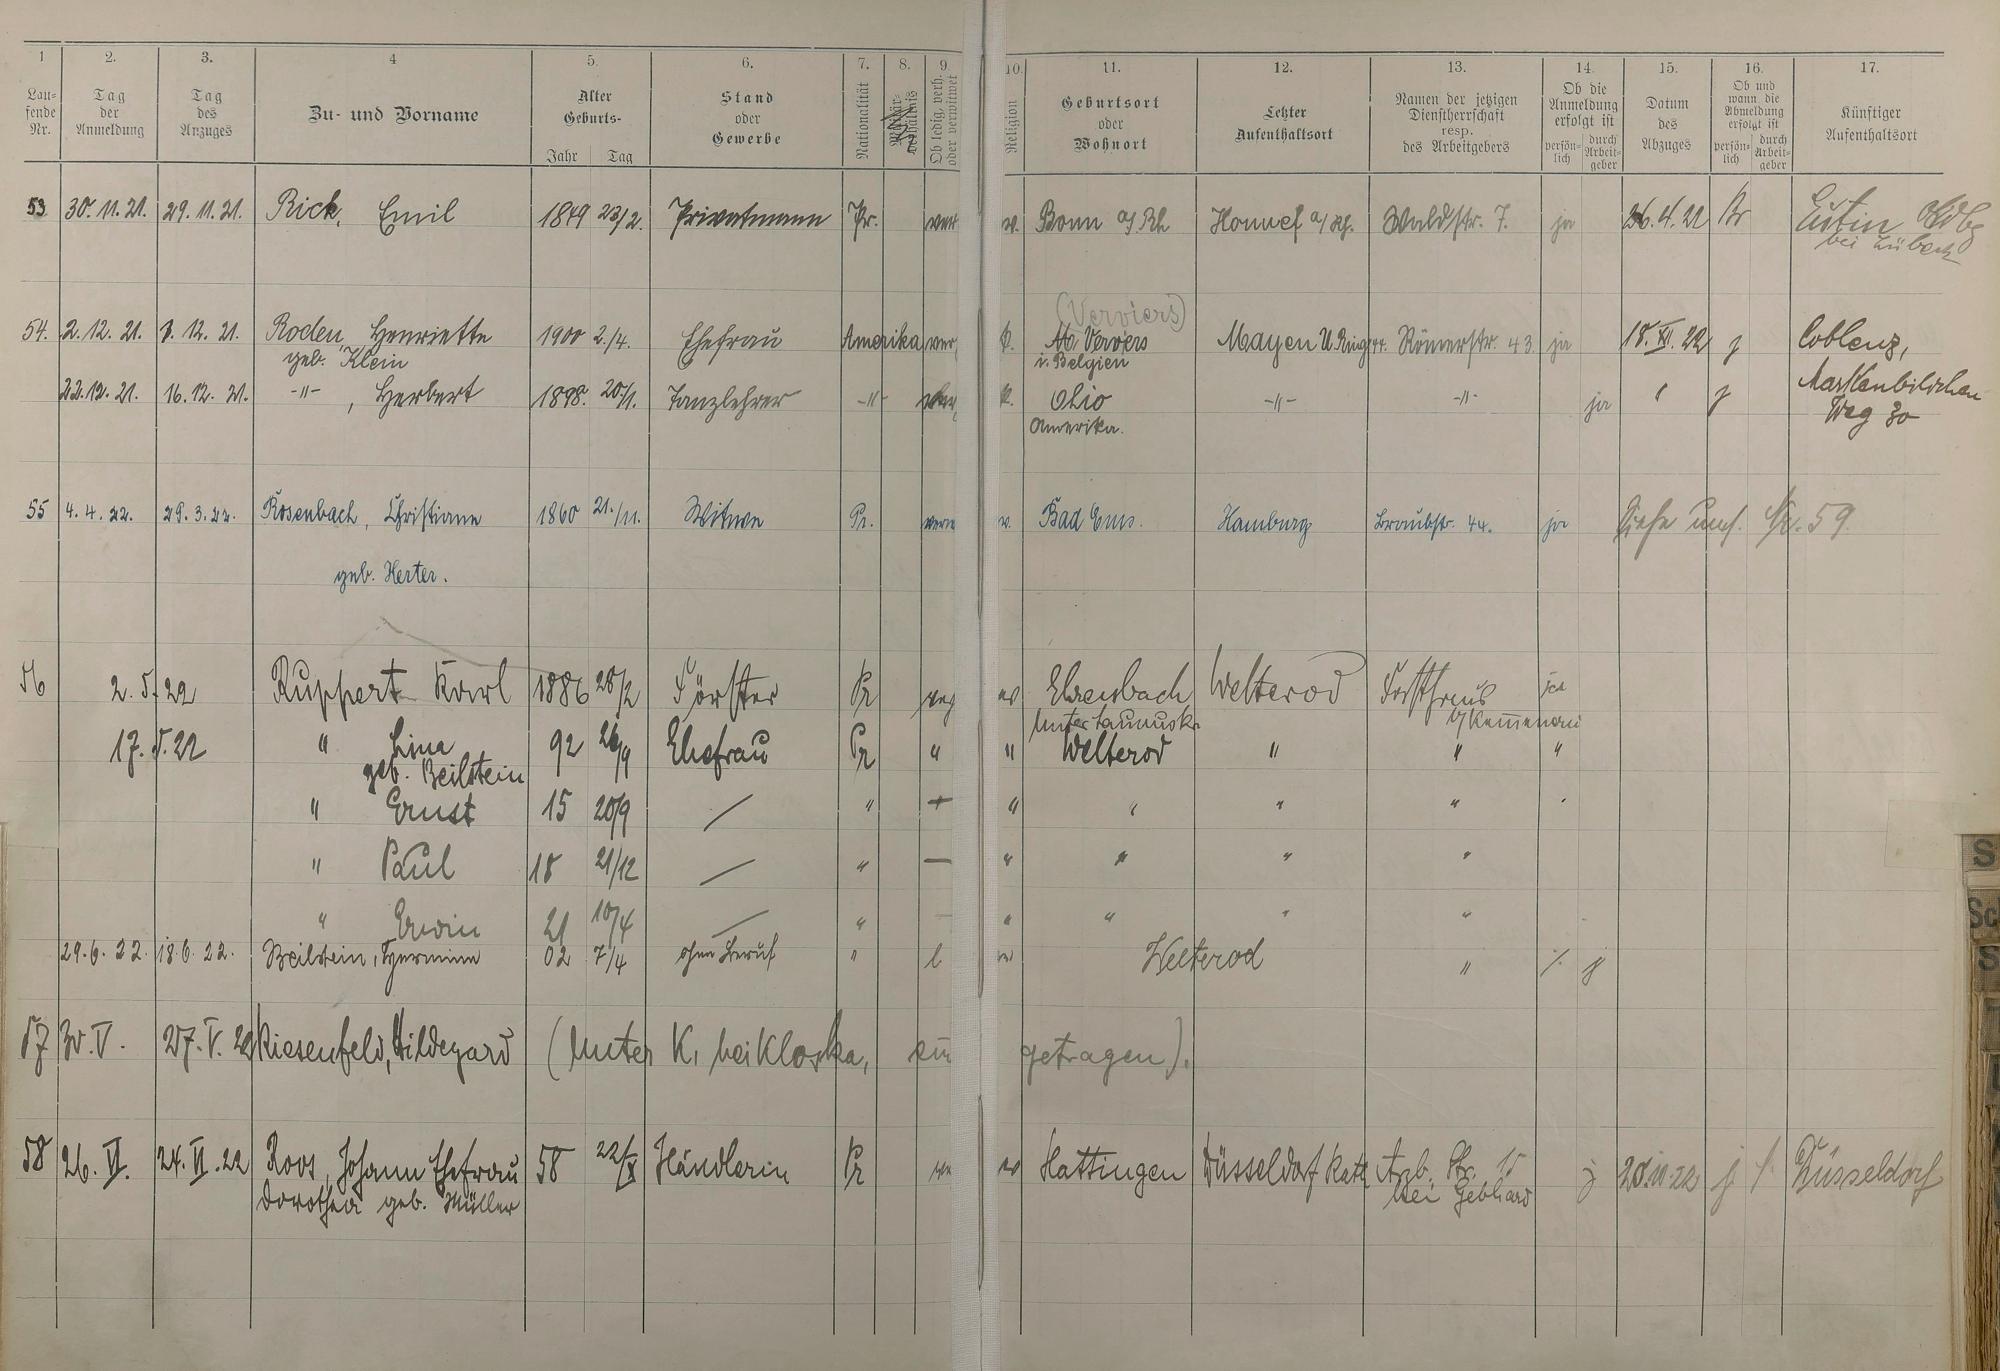 1 2. 3. 4 5. 6. 7. 8. 9. 10. 11. 12. 13. 14. 15. 16. 17.
Lau-
fende
Nr.
Tag
der
Anmeldung
Tag
des
Anzuges
Zu- und Vorname
Alter
Geburts-
Jahr Tag
Stand
oder
Gewerbe
Nationalität
Militär-
verhältnis
Ob ledig, verh.
oder verwitwet
Religion
Geburtsort
oder
Wohnort
Letzter
Aufenthaltsort
Namen der jetzigen
Dienstherrschaft
resp.
des Arbeitgebers
Ob die
Anmeldung
erfolgt ist
persön-
lich
durch
Arbeit-
geber
Datum
des
Abzuges
Ob und
wann die
Abmeldung
erfolgt ist
persön-
lich
durch
Arbeit-
geber
Künftiger
Aufenthaltsort
53 30. 11. 21. 29. 11. 21. Rick, Emil 1849 23/2. Privatmann Pr. Bonn a/Rh Honnef a/Rh. Waldstr. 7. ja 26. 4. 22 Eutin
bei Lübeck
(Verviers)
54. 2. 12. 21. 1. 12. 21. Roden, Henriette 1900 2./4. Ehefrau Amerika ver k. Ververs Mayen Römerstr. 43. ja 18. XI. 22 j Coblenz,
geb. Klein i. Belgien
22. 12. 21. 16. 12. 21. -"- , Herbert 1898. 20/1. Tanzlehrer -"- k. Ohio -"- -"- ja " j
Amerika. Weg 30
55 4. 4. 22. 29. 3. 22. Rosenbach, Christiane 1860 21./11. Witwe Pr. Bad Ems. Hamburg Braubstr. 44. ja Siehe unt. Nr. 59.
geb. Herter.
56 2. 5. 22 Ruppert Karl 1886 28/2 Förster Pr ev Ehrensbach Welterod Forsthaus ja
Untertaunuskr b/Kemmenau
17. 5. 22 " Lina 92 26/9 Ehefrau Pr " " Welterod " " "
geb. Beilstein
" Ernst 15 20/9 / " " " " "
" Paul 18 21/12 / " — " " " "
" Erwin 21 10/4 / " " " " "
29. 6. 22. 18. 6. 22. Beilstein, Hermine 02 7/4 ohne Beruf " l Welterod " j
57 30. V. 27. V. 22 Riesenfeld, Hildegard (Unter K, bei Kloska, getragen).
58 26. VI. 24. VI. 22 Roos, Johann Ehefrau 58 22/X Händlerin Pr Hattingen Düsseldorf Arb. Str. 15 j 28. 10. 22 j / Düsseldorf
Dorothea geb. Müller bei Gebhard
S
Sch
S